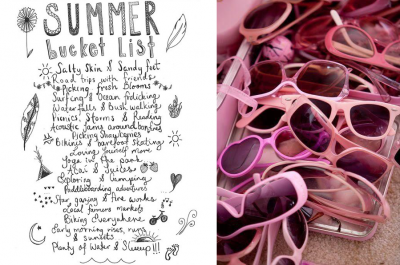 SUMMER
bucket List
Salty Skin & Sandy feet
Road trips with friends
Picking fresh blooms
Surfing & Ocean frolicking
Waterfalls & Bush walking
Picnics, Storms & Reading
Acoustic jams around bonfires
Picking Strawberries
Bikinis & barefoot skating
Loving Yourself more
Yoga in the park
& Smiles
Exploring & Camping
Paddleboarding adventures
Star gazing & fire works
Local farmers markets
Biking Everywhere
Early morning rises, runs
& sunsets
Plenty of Water & Sleeup!!!